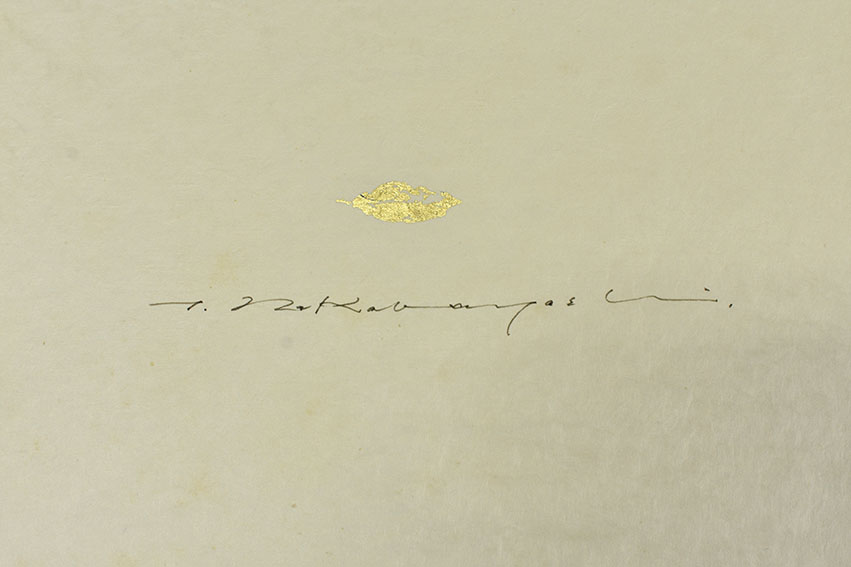 T. Nakabayashi.